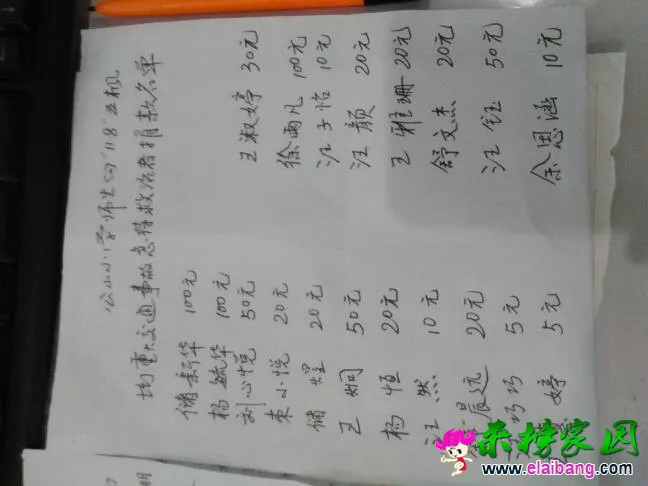 公山小学师生向"118"五枫
均重大交通事故急待救治者捐款名单
储新华 100元
杨毓华 100元
刘心悦 50元 王淑婷 30元
束小悦 20元 徐雨凡 100元
储煜 20元 汪子怡 10元
王炯 50元 汪颜 20元
杨恒 20元 王雅珊 20元
汪然 10元 舒文杰 20元
晨远 20元 汪钰 50元
巧巧 5元
婷 5元 余思涵 10元
明
来榜家园
www.elaibang.com